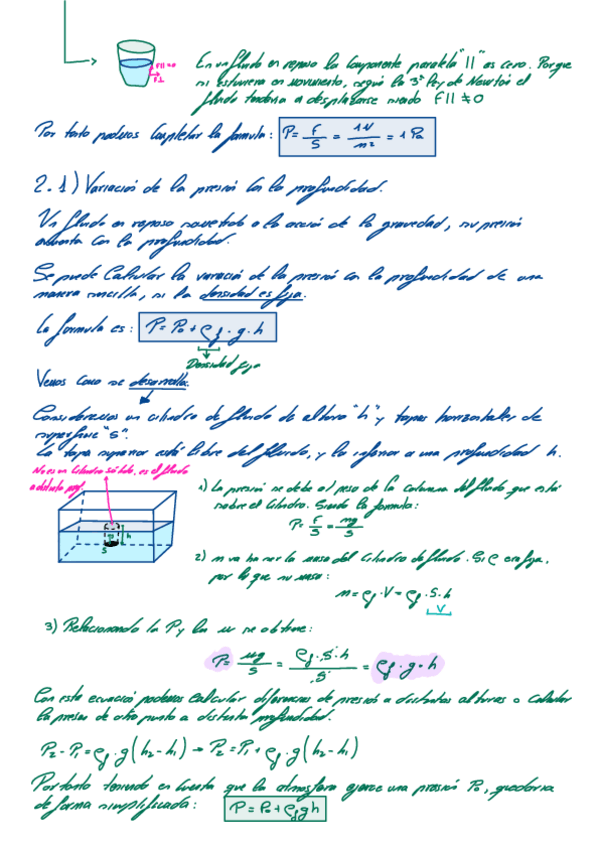 F∥=0
F⊥
En un fluido en reposo la componente paralela "||" es cero. Porque
si estuviera en movimiento, según la 3ª Ley de Newton el
fluido tendería a desplazarse siendo F|| ≠ 0
Por tanto podemos completar la formula: P = F/S = 1N/m² = 1 Pa
2.1) Variación de la presión con la profundidad.
Un fluido en reposo sometido a la acción de la gravedad, su presión
aumenta con la profundidad.
Se puede calcular la variación de la presión con la profundidad de una
manera sencilla, si la densidad es fija.
La formula es: P = P₀ + ρf · g · h
Densidad fija
Vemos como se desarrolla.
Consideramos un cilindro de fluido de altura "h" y tapas horizontales de
superficie "S".
La tapa superior está libre del fluido, y la inferior a una profundidad h.
No es un cilindro sólido, es el fluido
a distinta prof.
h
S
1) La presión se debe al peso de la columna del fluido que está
sobre el cilindro. Siendo la formula:
P = F/S = mg/S
2) m va ha ser la masa del cilindro de fluido. Si ρ era fija,
por lo que su masa:
m = ρf · V = ρf · S · h
V
3) Relacionando la P y la m se obtiene:
P = mg/S = ρf · S · h/S = ρf · g · h
Con esta ecuación podemos calcular diferencias de presión a distintas alturas o calcular
la presión de otro punto a distinta profundidad.
P₂ - P₁ = ρf · g (h₂ - h₁) → P₂ = P₁ + ρf · g (h₂ - h₁)
Por tanto teniendo en cuenta que la atmosfera ejerce una presión P₀, quedaría
de forma simplificada: P = P₀ + ρf g h